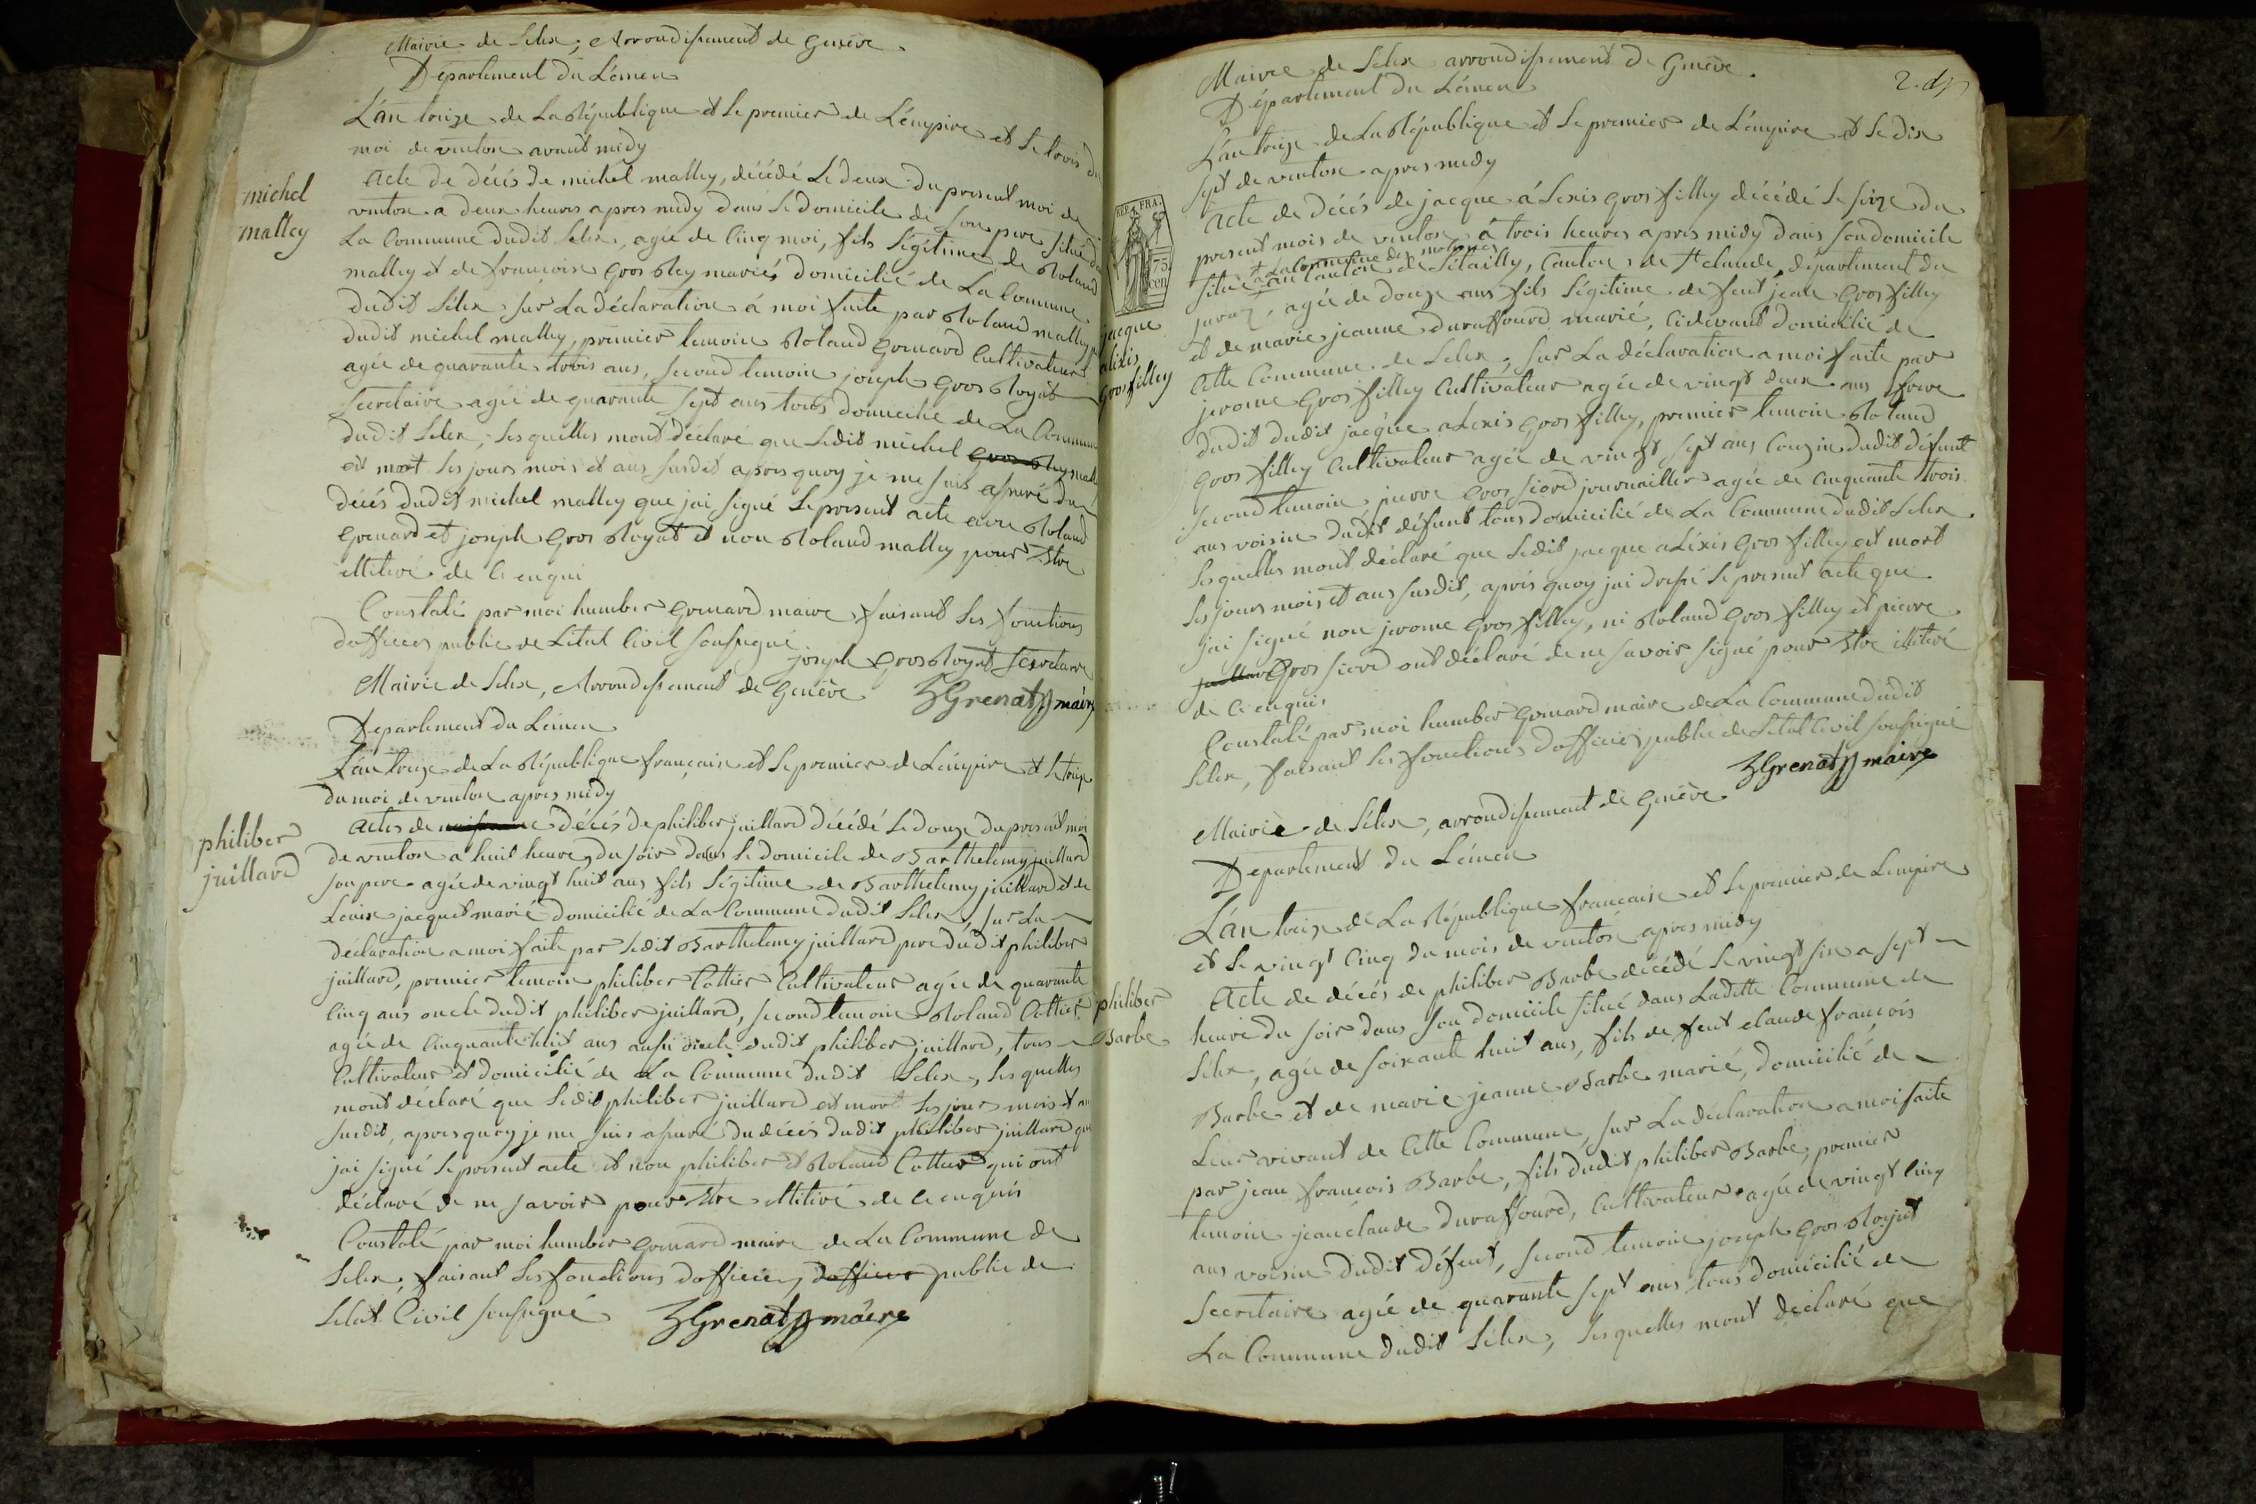 Mairie de Lelex, Arrondissement de Genève.
Département du Léman
L'an treize de la République et le premier de L'émpire et le trois du
moi de ventose avant midy
michel
malley
Acte de décés de michel malley, décédé le deux du present moi de
ventose a deux heures apres midy dans le domicile de son pere situé d
La Commune dudit Lelex, agée de Cinq moi, fils légitime de Roland
malley et de francoise Gros Rey mariés domicilié de La Commune
dudit Lélex sur La déclaration á moi faite par Roland malley p
dudit michel malley, prémier temoin Roland Grenard Cultivateur
agée de quarante trois ans, second temoin joseph Gros Royat
Secretaire agée de quarante sept ans tous domicilié de La Commune
dudit Lelex, lesquelles mont déclaré que ledit michel Gros Rey mall
est mort les jours mois et ans susdit apres quoy je me suis assuré du
décés dudit michel malley que jai signé le present acte avec Roland
Grenard et joseph Gros Royat et non Roland malley pour Etre
illiteré de Ce enqui
Constaté par moi humber Grenard maire faisant les fonctions
dofficier public de Létat Civil soussigné
joseph Gros Royat Secretaire
HGrenard maire
Mairie de Lelex, Arrondissement de Genève
Departement du Léman
L'an treize de La République française et le premier de L'émpire et le treize
du moi de ventose apres midy
philiber
juillard
Actes de naissance décés de philiber juillard décédé le douze du present moi
de ventose a huit heures du soir dans le domicile de Barthelemy juillard
son pere agée de vingt huit ans fils légitime de Barthelemy juillard et de
Louise jacquet marié domicilié de La Commune dudit Lelex, sur La
déclaration a moi faite par ledit Barthelemy juillard pere dudit philiber
juillard, premier temoin philiber Cottier Cultivateur agée de quarante
Cinq ans oncle dudit philiber juillard, second temoin Roland Cottier
agée de Cinquante huit ans aussi oncle dudit philiber juillard, tous
Cultivateur et domicilié de La Commune dudit Lelex, lesquelles
mont déclaré que ledit philiber juillard est mort les jour mois et an
susdit, apres quoy je me suis assuré du décés dudit philiber juillard que
jai signé le present acte et non philiber et Roland Cottier qui ont
déclaré de ne savoir pour Etre illiteré de Ce enquis
Constaté par moi humber Grenard maire de La Commune de
Lelex, faisant les fonctions dofficier dofficier public de
Létat Civil soussigné HGrenard maire
Mairie de Lelex arrondissement de Genève.
Département du Léman
L'an treize de La République et le premier de L'émpire et le dix
sept de ventose apres midy
REP. FRA.
75
cen
jacque
alixis
Gros filley
Acte de décés de jacque á Lexis Gros filley décédé le seize du
present mois de ventose á trois heures apres midy dans son domicile
et La Commune des molunes
situé au Canton de Sétailly, Canton de St claude, département du
jura, agée de douze ans fils légitime de feut jean Gros filley
et de marie jeanne duraffourd marié, Cidevant domicilié de
Cette Commune de Lelex, sur La déclaration a moi faite par
jerome Gros filley Cultivateur agée de vingt deux ans frere
dudit dudit jacque alexis Gros filley, premier temoin Roland
Gros filley Cultivateur agée de vingt sept ans Couzin dudit défunt
second temoin pierre Gros siord journailler agée de Cinquante trois
ans voisin dudit défunt tous domicilié de La Commune dudit Lelex
lesquelles mont déclaré que ledit jacque aLixis Gros filley est mort
les jours mois et ans susdit, après quoy jai dressé le present acte que
jai signé non jerome Gros filley, ni Roland Gros filley et pierre
juillard Gros siord ont déclaré de ne savoir signé pour Etre illiteré
de Ce enquis
Constaté par moi humber Grenard maire de La Commune dudit
Lélex, faisant les fonctions dofficier public de Létat Civil soussigné
HGrenard maire
Mairie de Lélex, arrondissement de Genève
Departement du Léman
L'an treize de La République francaise et le premier de Lempire
et le vingt Cinq du mois de ventose apres midy
philiber
Barbe
Acte de décés de philiber Barbe décédé le vingt six a sept
heure du soir dans son domicile situé dans Ladite Commune de
Lelex, agée de soixante huit ans, fils de feut claude françois
Barbe et de marie jeanne Barbe marié, domicilié de
Leur vivant de Cette Commune, sur La déclaration a moi faite
par jean francois Barbe, fils dudit philiber Barbe, premier
temoin jean claude duraffourd, Cultivateur agée de vingt Cinq
ans voisin dudit défunt, second temoin joseph Gros Royat
Secretaire agée de quarante sept ans tous domicilié de
La Commune dudit Lélex, lesquelles mont declaré que